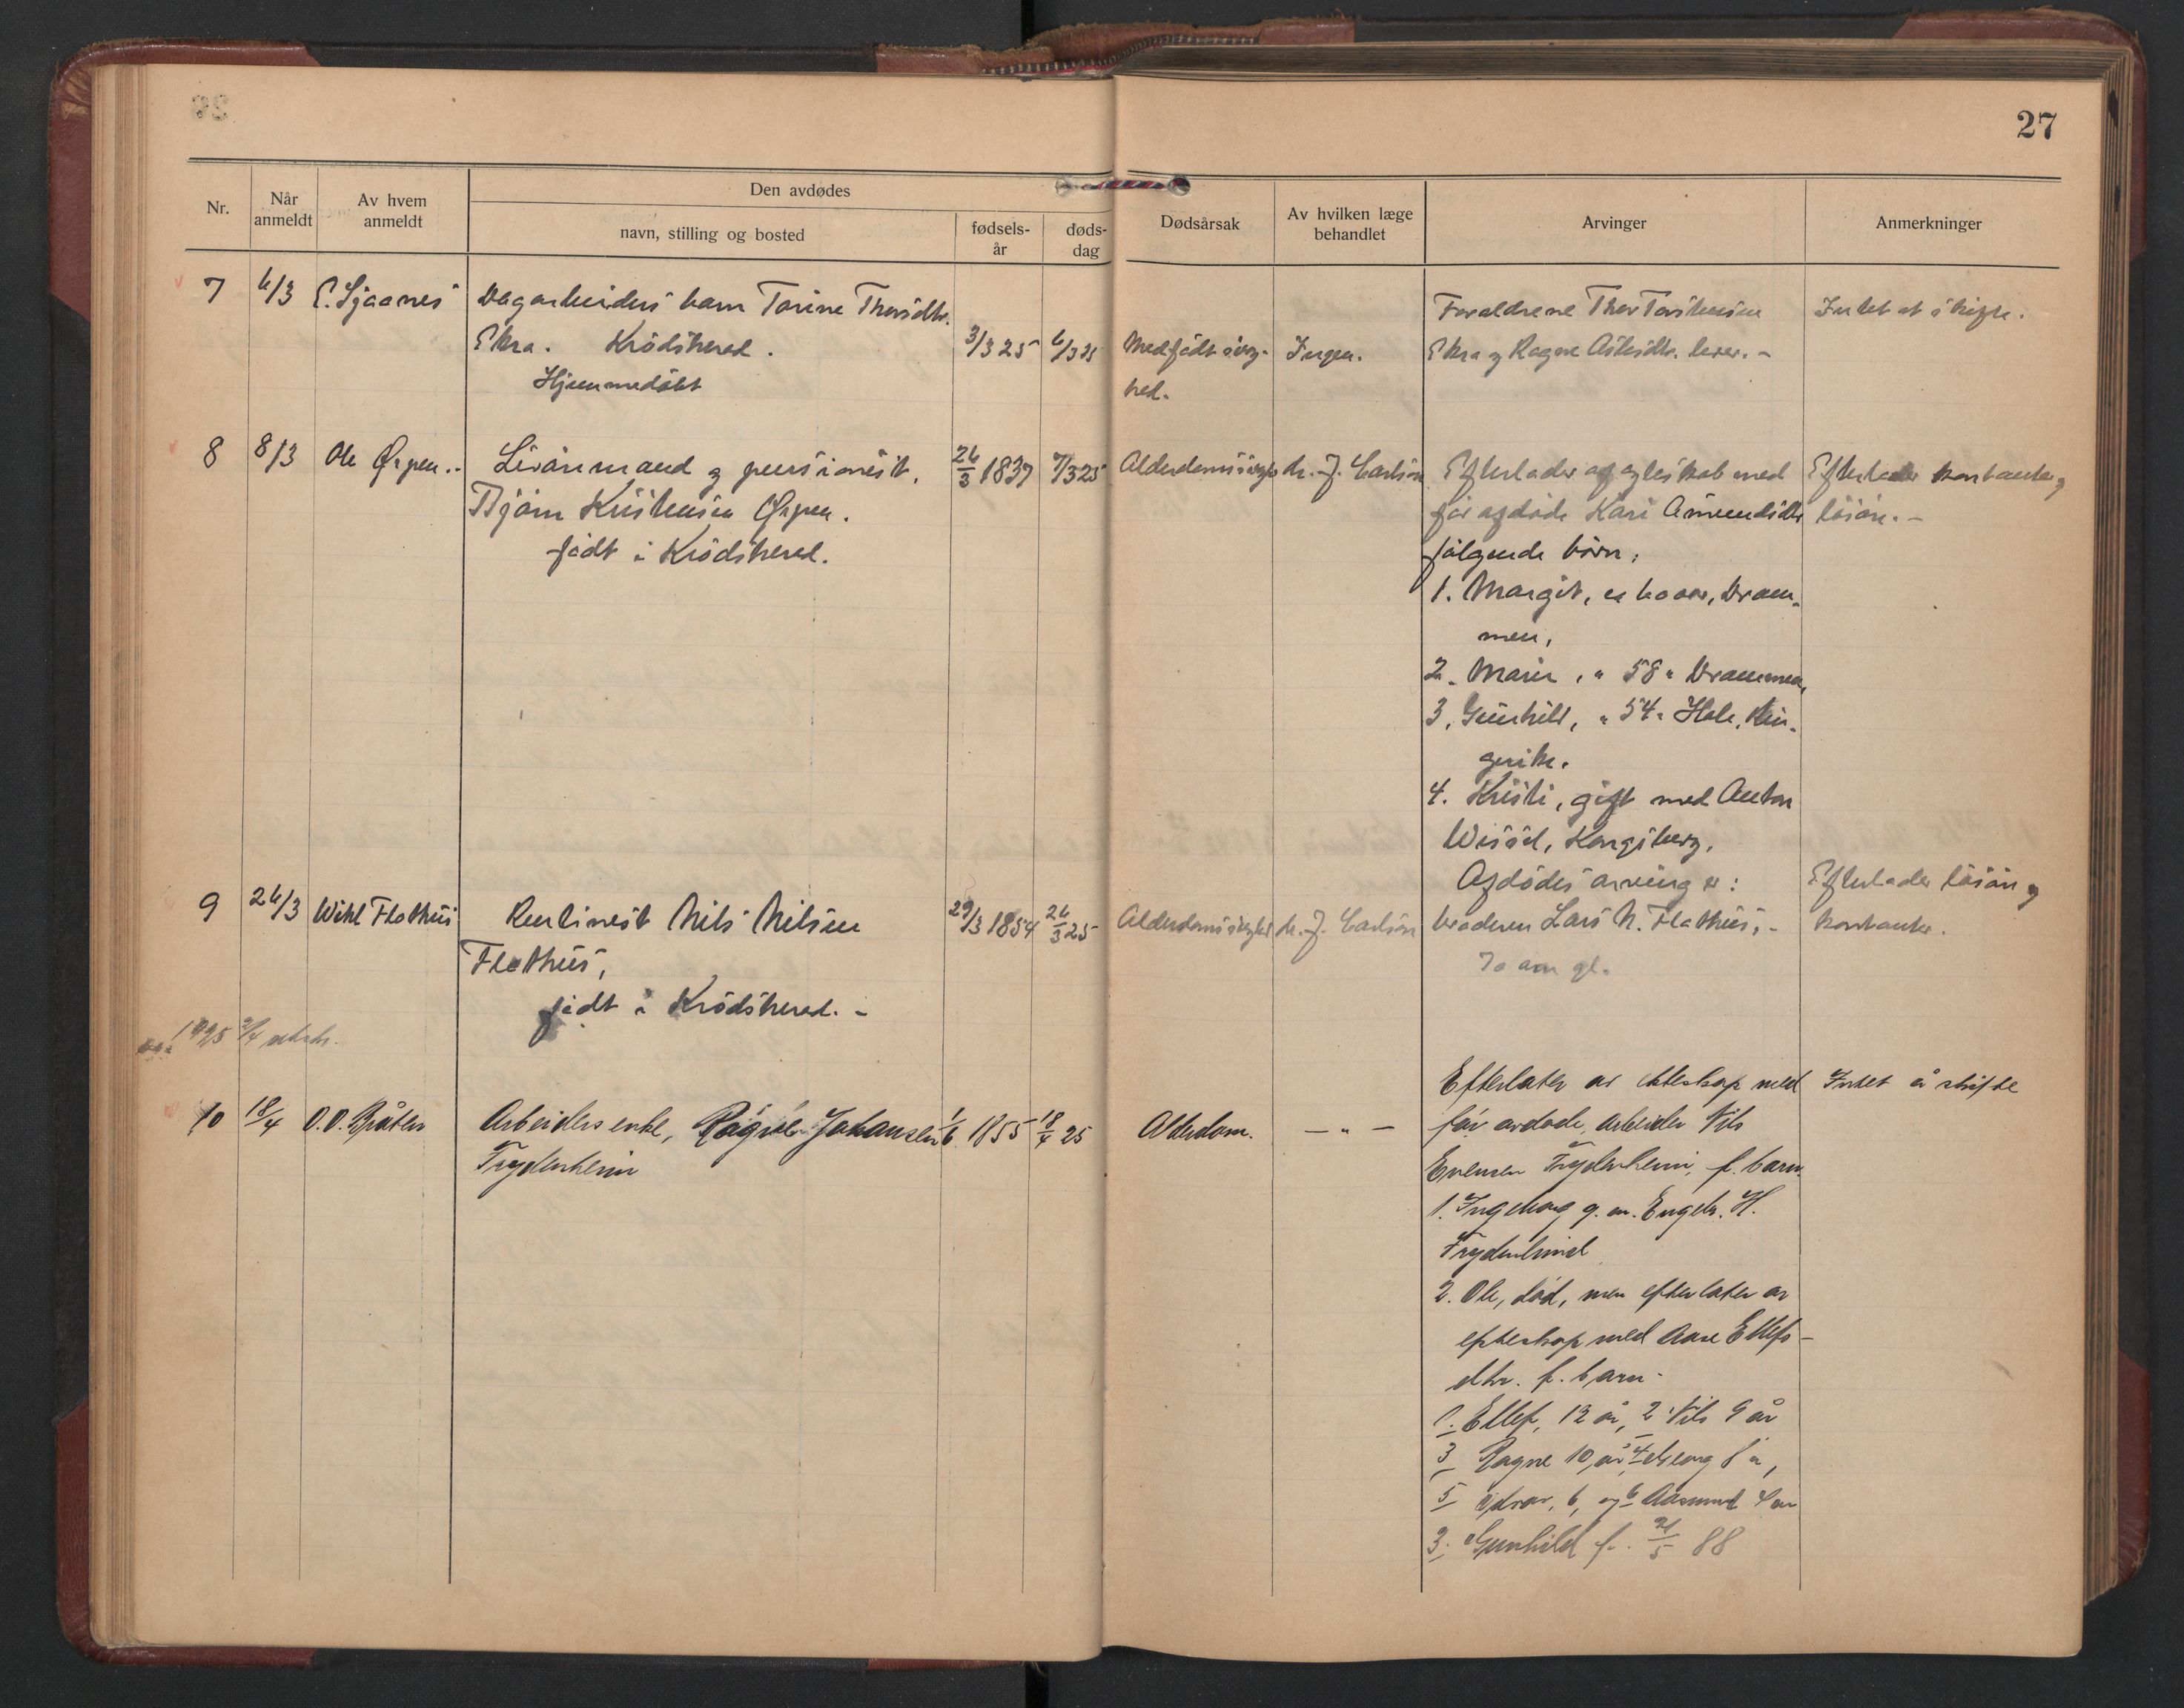 27
Nr.
Når anmeldt
Av hvem anmeldt
Den avdødes
navn, stilling og bosted
fødsels-
år
døds-
dag
Dødsårsak
Av hvilken læge
behandlet
Arvinger
Anmerkninger
7 6/3 Dagarbeiders barn Torine Thorsdtr.
Ekra. Krødsherad.
Hjemmedøbt
3/3 25 6/3 25
Medfødt svag-
hed.
Ingen.
Forældrene Thor Torstensen
Ekra og Ragne lever. -
Intet at skifte.
8 8/3 Ole Ørpen.-
Livørmand og pensionist,
Bjørn Kristensen Ørpen.
født i Krødsherad.
26/3 1837 7/3 25
Alderdomssvaghed
dr. J. Carlson
Efterlader af egteskab med
før afdøde Kari Amundsdtr
følgende børn,
1. Margit, ca 60 aar, Dram-
men,
2. Marie, " 58 " Drammen,
3. Gunhild, " 54 " Hole, Rin-
gerike.
4. Kristi, gift med Anton
Kongsberg.
Efterlader kontanter og
løsøre. -
9 26/3 Wihl Flathus
Rentinest Nils Nilsen
Flathus,
født i Krødsherad. -
29/3 1854 26/3 25
Alderdomssvaghed
dr. J. Carlson
Afdødes arving er:
broderen Lars N. Flathus, -
70 aar gl.
Efterlader løsøre og
kontanter.
1925 2/4
10 18/4 O.O. Bråten
Arbeiders enke, Ragne Johansen
Frydenheim
1/6 1855 18/4 25
Alderdom.
— " —
Efterlater av ekteskap med
før avdøde, arbeider Nils
Evensen Frydenheim, f. barn.
1. Ingeborg g. m. Engebr. H.
Frydenlund
2. Ole, død, men efterlater av
egteskap med Aase Ellefs-
dtr. f. barn.
1. Ellef, 12 år, 2 Nils 9 år
3 Ragne 10 år, 4 8 år,
5 6, og 6 Aasmund 4 år
3. Gunhild f. 21/5 88
Intet å skifte